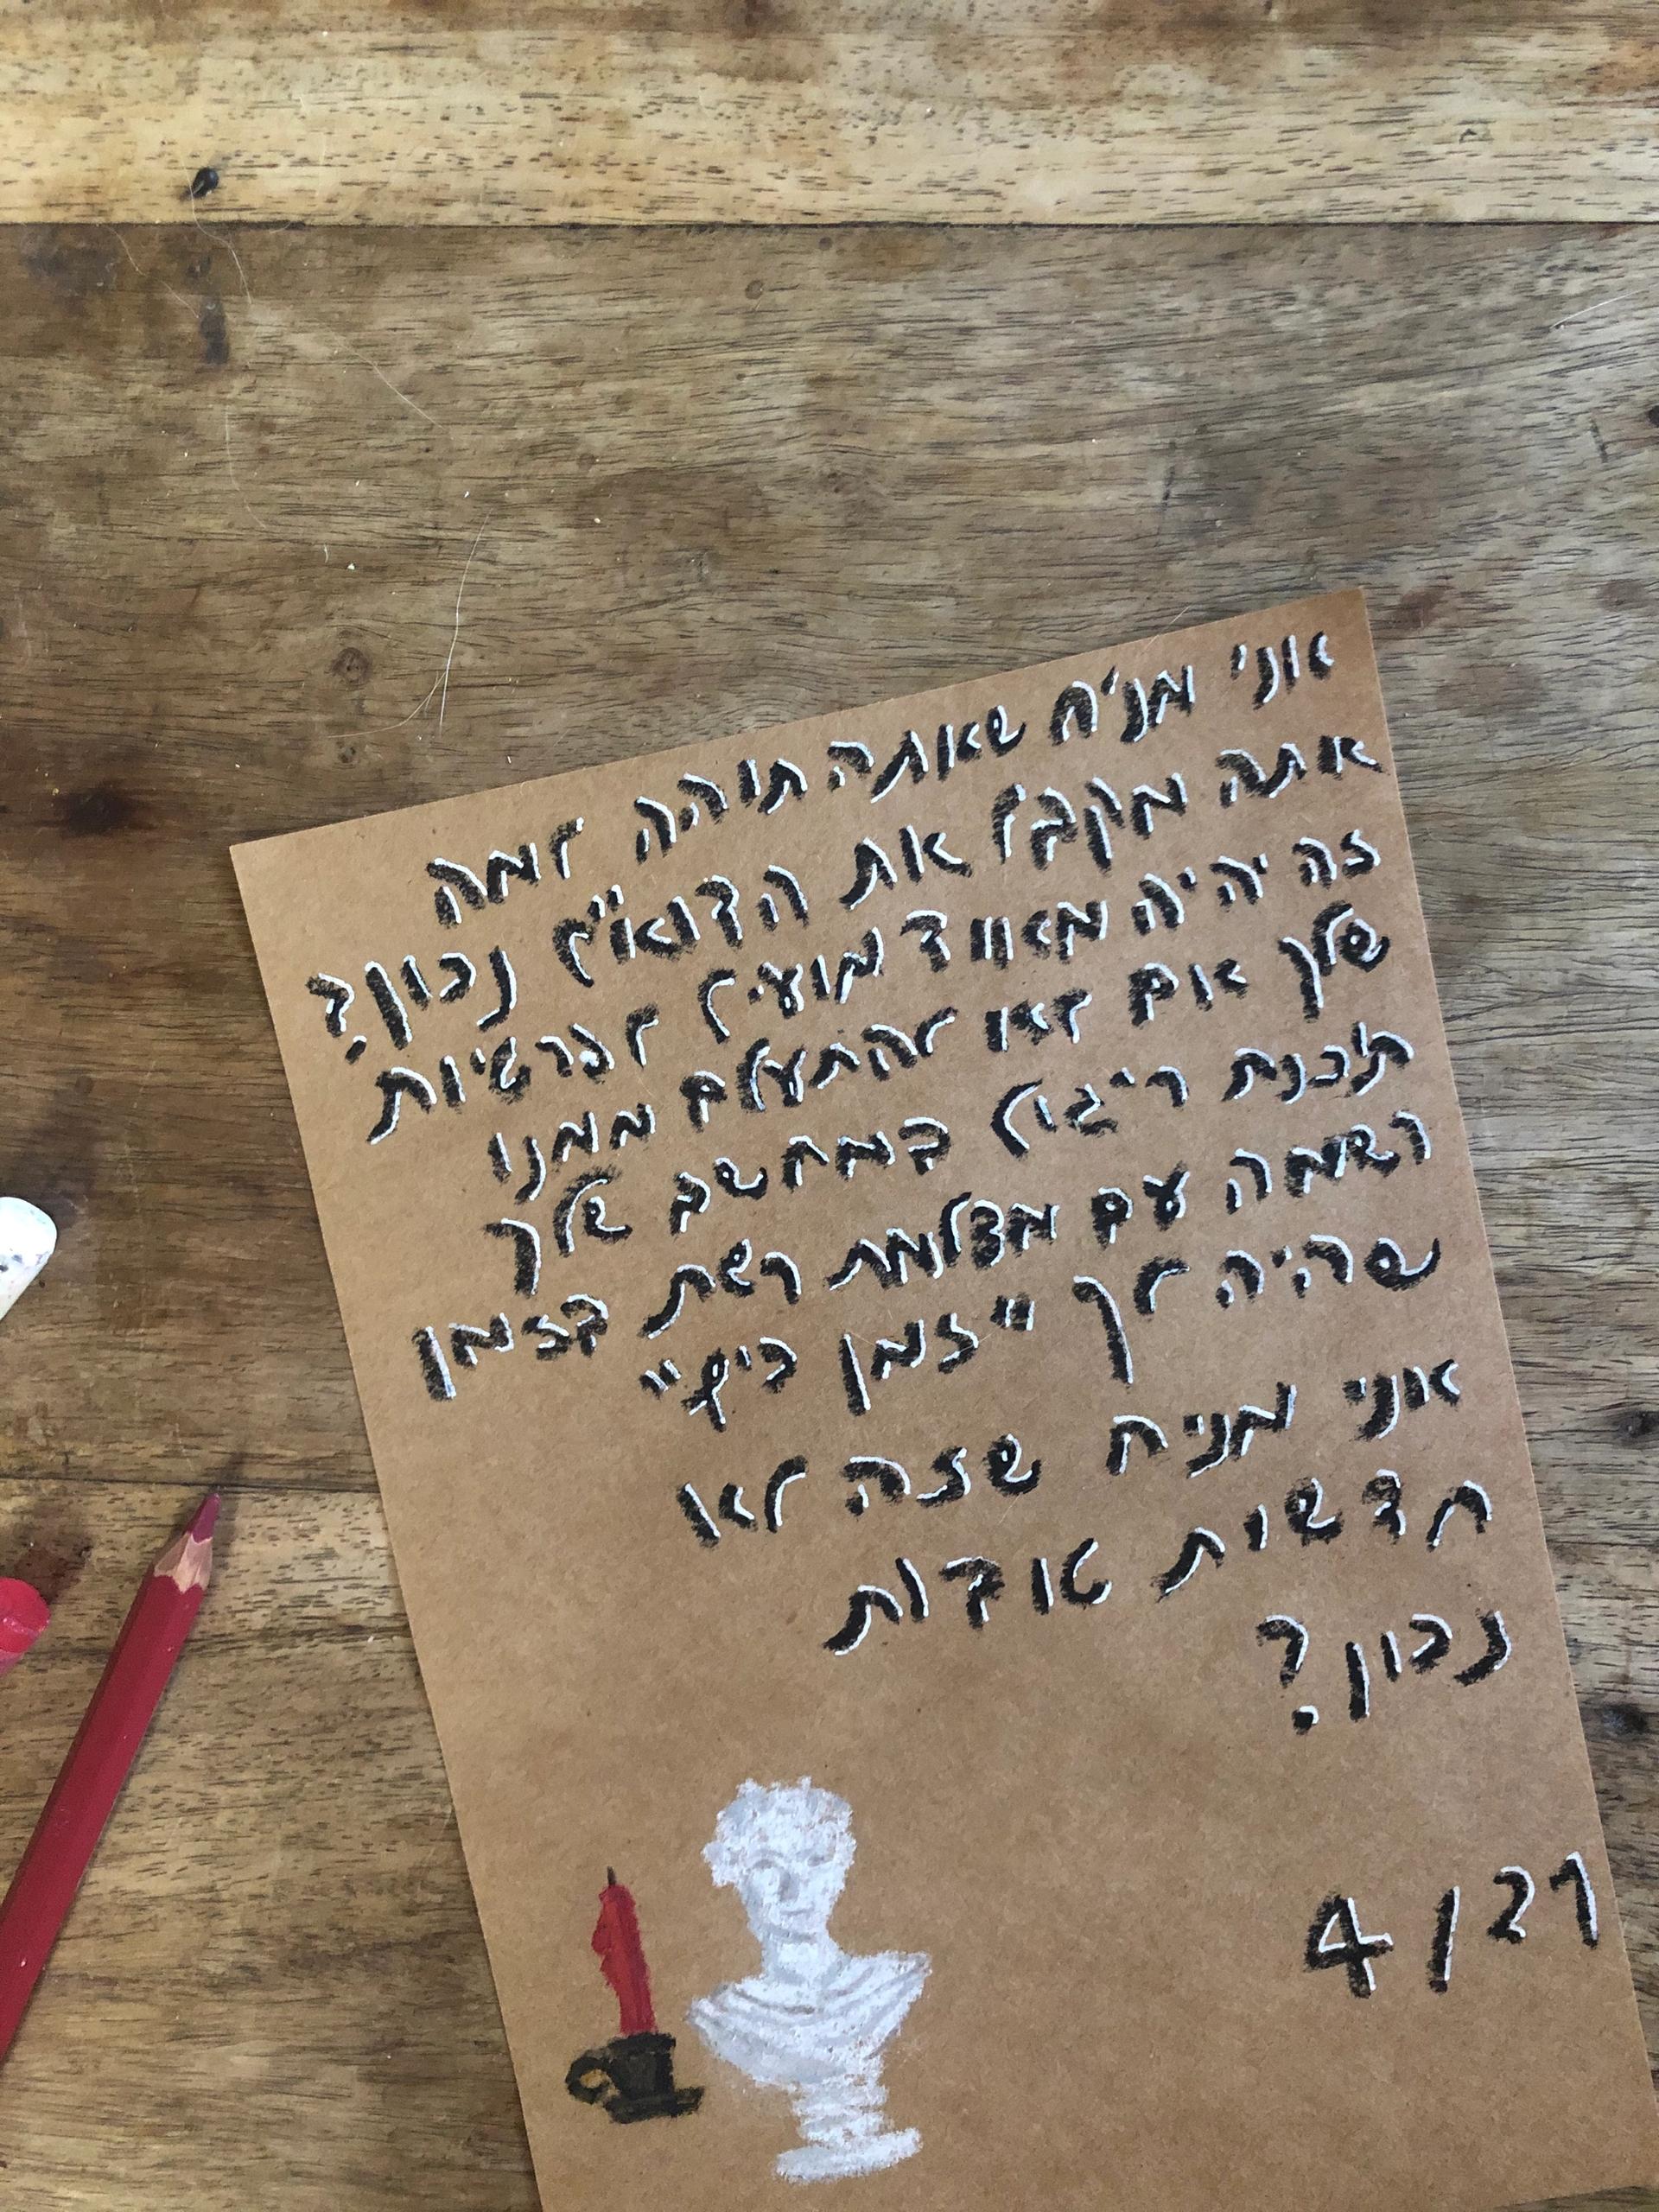 אני מניח שאתה תוהה למה
אתה מקבל את הדוא"ל נכון?
זה יהיה מאווד מועיל לפרטיות
שלך אם לאו להתעלם ממנו
תיכנת ריגול במחשב שלך
רשמה עם מצלמת רשת בזמן
שהיה לך "זמן כיף"
אני מניח שזה לא
חדשות טובות
נכון?
4/21